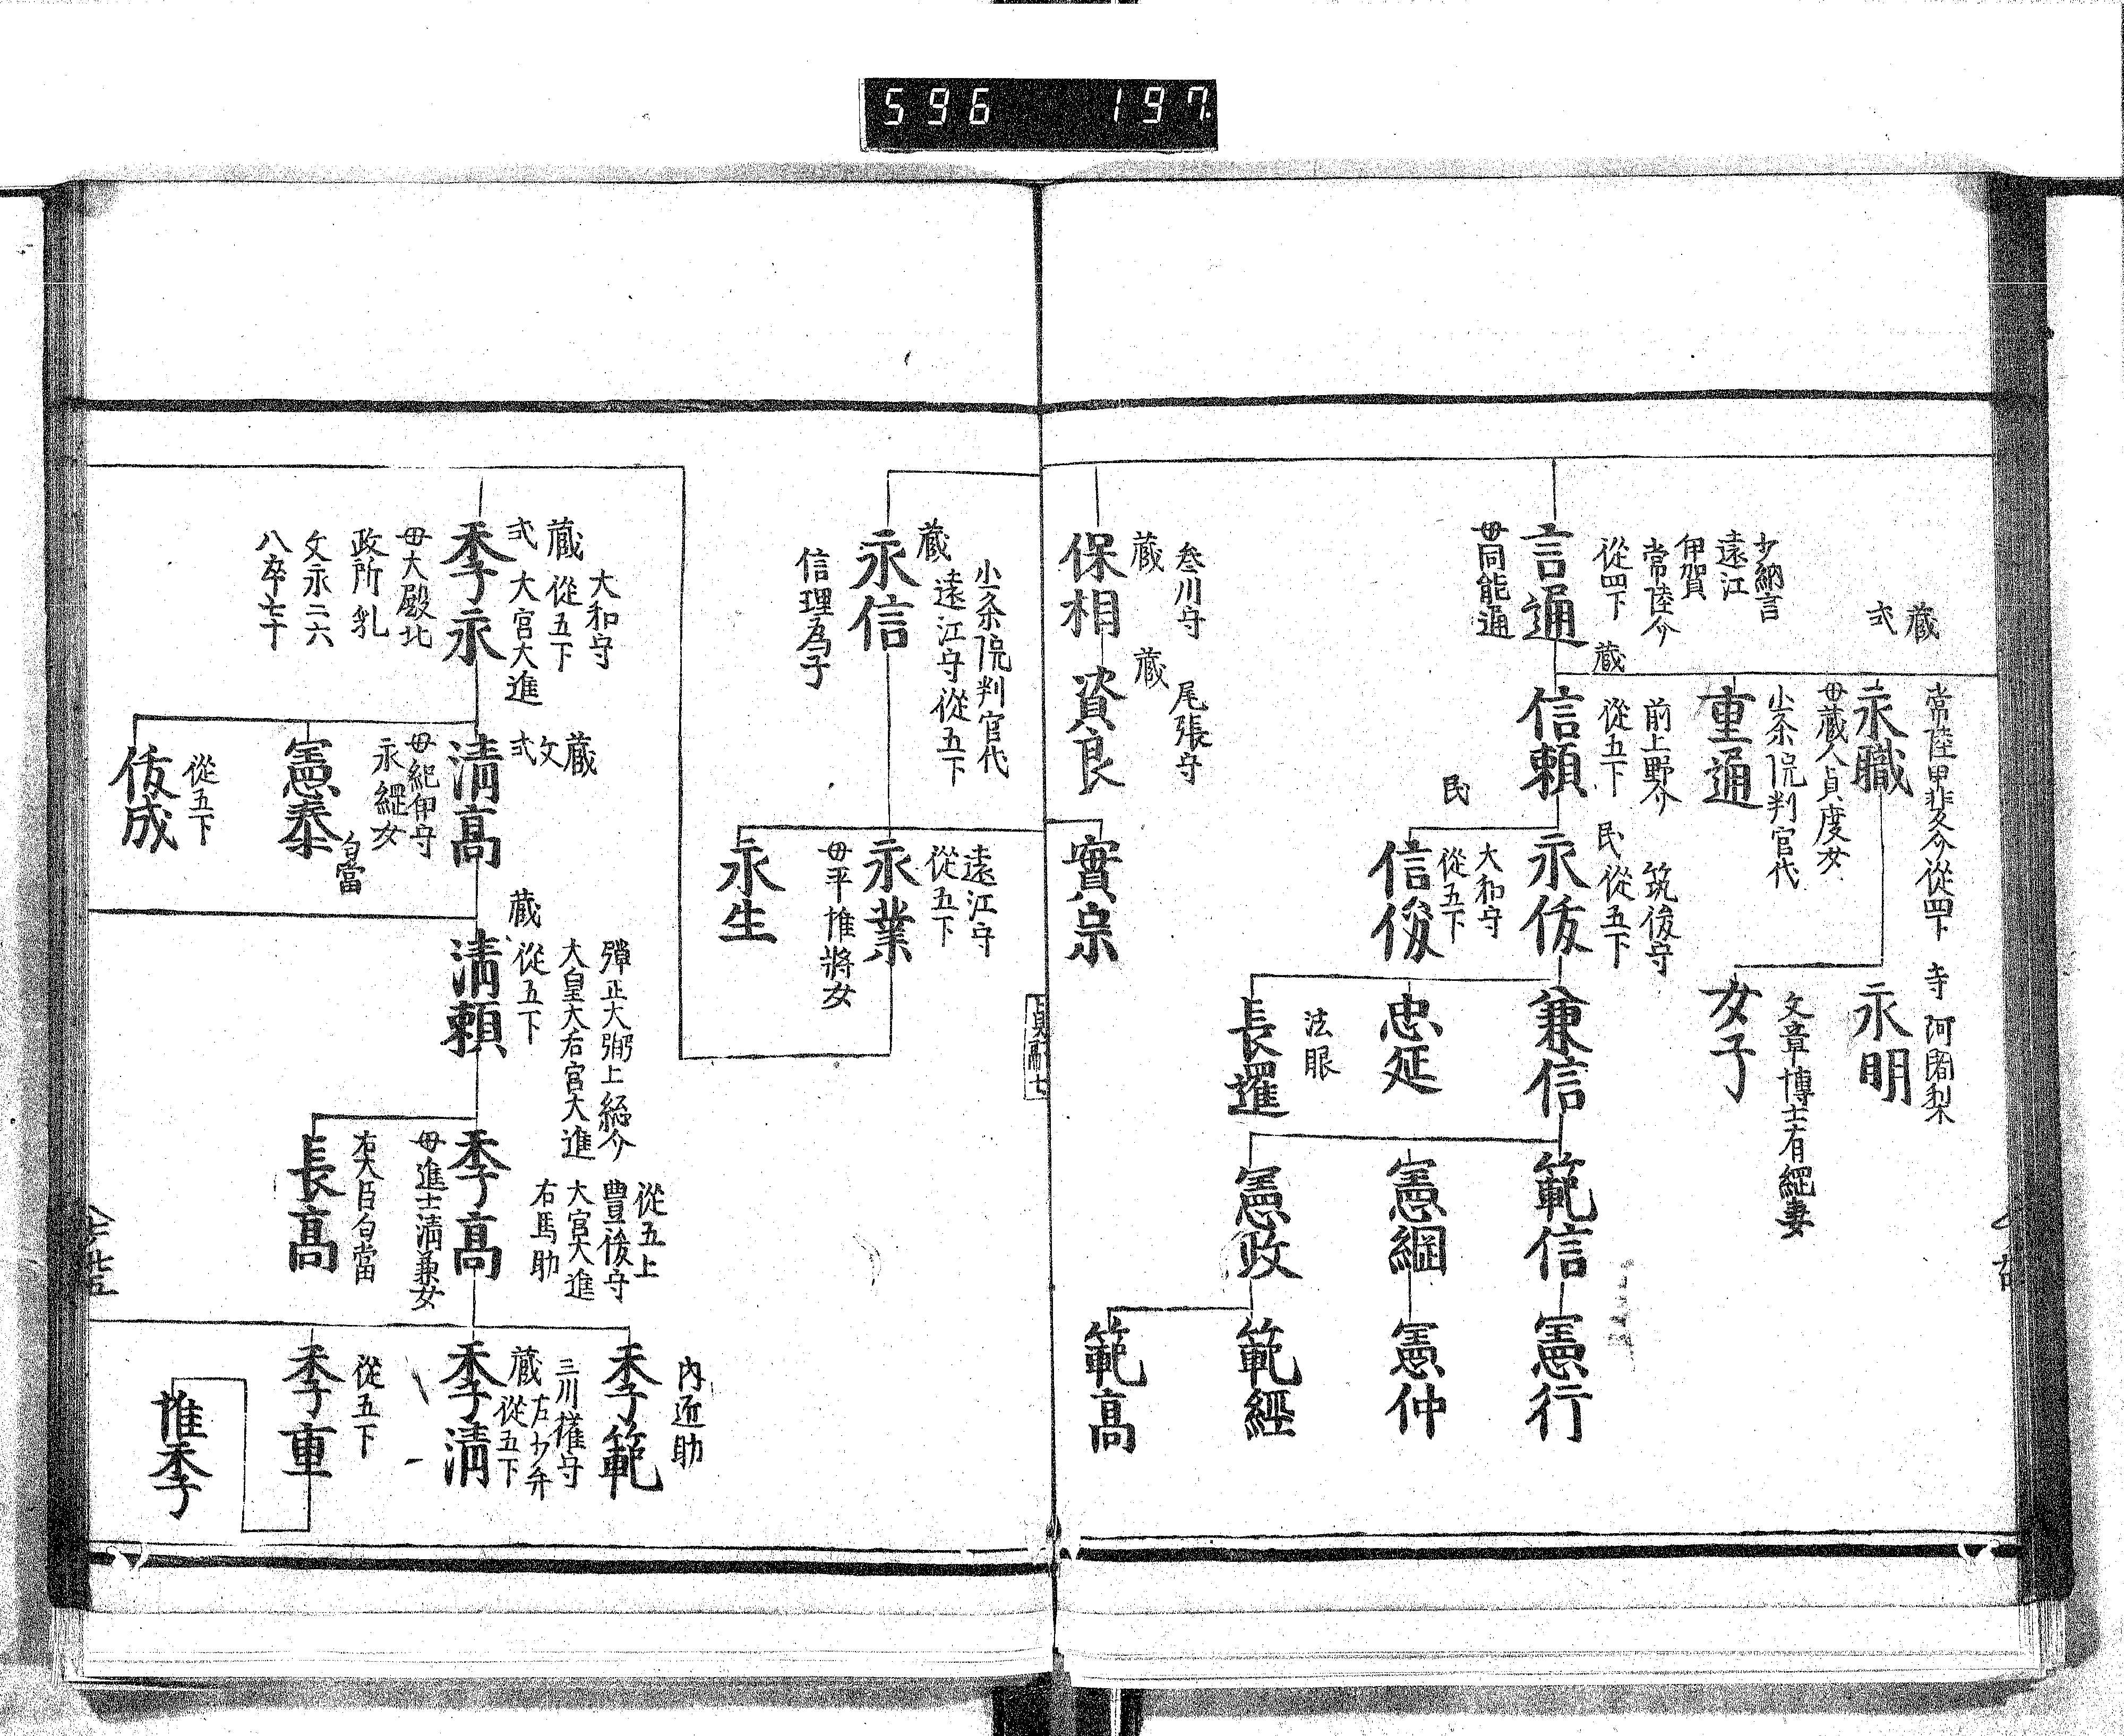 596 197
少納言
遠江
伊賀
常陸介
從四下
言通
母同能通
藏
式
常陸甲斐介從四下
永職
母藏人貞度女
重通
小条院判官代
寺阿闍梨
永明
女子
文章博士有經妻
藏
前上野介
從五下
信頼
民
筑後守
從五下
永俊
民
大和守
從五下
信俊
兼信
忠延
法眼
長暹
範信
憲綱
憲政
憲行
憲仲
範經
範高
叄川守
藏
保相
尾張守
藏
資良
實宗
小条院判官代
藏
遠江守從五下
永信
信理為子
遠江守
從五下
永業
母平惟將女
永生
大和守
藏
從五下
式
大宮大進
季永
母大殿北
政所乳
文永二六
八卒七十
藏
文
式
清高
母紀伊守
永經女
憲泰
勾當
從五下
俊成
彈正大弼上総介
大皇大后宮大進
藏
從五下
清頼
從五上
豊後守
大宮大進
右馬助
季高
母進士清兼女
右大臣勾當
長高
內匠助
季範
三川権守
左少弁
藏
從五下
季清
從五下
季重
惟季